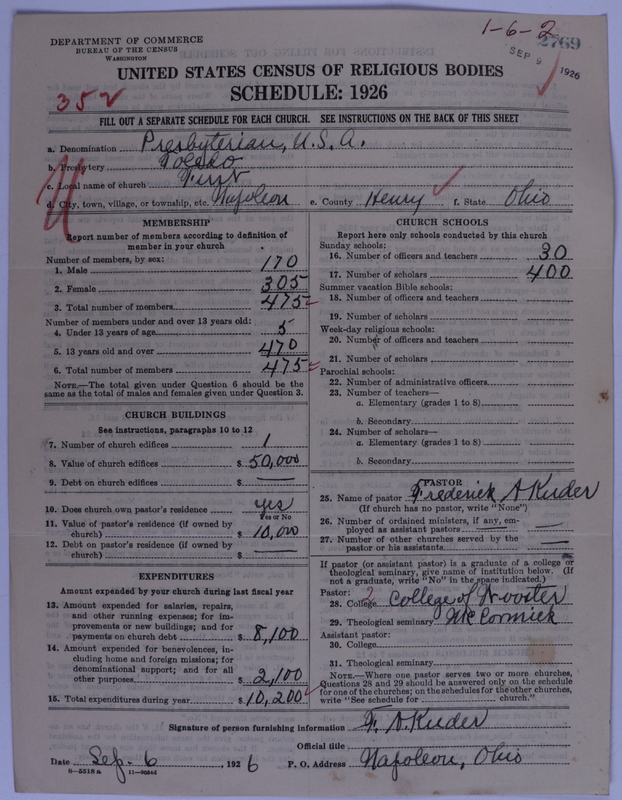 1-6-2
2769
SEP 9 1926
DEPARTMENT OF COMMERCE
BUREAU OF THE CENSUS
WASHINGTON
UNITED STATES CENSUS OF RELIGIOUS BODIES
SCHEDULE: 1926
352
FILL OUT A SEPARATE SCHEDULE FOR EACH CHURCH. SEE INSTRUCTIONS ON THE BACK OF THIS SHEET
a. Denomination Presbyterian, U.S.A.
b. Presbytery Toledo
c. Local name of church First
d. City, town, village, or township, etc. Napoleon e. County Henry f. State Ohio
MEMBERSHIP
Report number of members according to definition of
member in your church
Number of members, by sex:
1. Male 170
2. Female 305
3. Total number of members 475
Number of members under and over 13 years old:
4. Under 13 years of age 5
5. 13 years old and over 470
6. Total number of members 475
NOTE.—The total given under Question 6 should be the
same as the total of males and females given under Question 3.
CHURCH BUILDINGS
See instructions, paragraphs 10 to 12
7. Number of church edifices 1
8. Value of church edifices $ 50,000
9. Debt on church edifices $ —
10. Does church own pastor's residence yes
Yes or No
11. Value of pastor's residence (if owned by
church) $ 10,000
12. Debt on pastor's residence (if owned by
church) $ —
EXPENDITURES
Amount expended by your church during last fiscal year
13. Amount expended for salaries, repairs,
and other running expenses; for im-
provements or new buildings; and for
payments on church debt $ 8,100
14. Amount expended for benevolences, in-
cluding home and foreign missions; for
denominational support; and for all
other purposes $ 2,100
15. Total expenditures during year $ 10,200
CHURCH SCHOOLS
Report here only schools conducted by this church
Sunday schools:
16. Number of officers and teachers 30
17. Number of scholars 400
Summer vacation Bible schools:
18. Number of officers and teachers
19. Number of scholars
Week-day religious schools:
20. Number of officers and teachers
21. Number of scholars
Parochial schools:
22. Number of administrative officers
23. Number of teachers—
a. Elementary (grades 1 to 8)
b. Secondary
24. Number of scholars—
a. Elementary (grades 1 to 8)
b. Secondary
PASTOR
25. Name of pastor Frederick A Kuder
(If church has no pastor, write "None")
26. Number of ordained ministers, if any, em-
ployed as assistant pastors —
27. Number of other churches served by the
pastor or his assistants —
If pastor (or assistant pastor) is a graduate of a college or
theological seminary, give name of institution below. (If
not a graduate, write "No" in the space indicated.)
Pastor:
28. College 2 College of Wooster
29. Theological seminary McCormick
Assistant pastor:
30. College
31. Theological seminary
NOTE.—Where one pastor serves two or more churches,
Questions 28 and 29 should be answered only on the schedule
for one of the churches; on the schedules for the other churches,
write "See schedule for church."
Signature of person furnishing information F. A Kuder
Official title
Date Sep. 6, 1926 P. O. Address Napoleon, Ohio
8-5518a